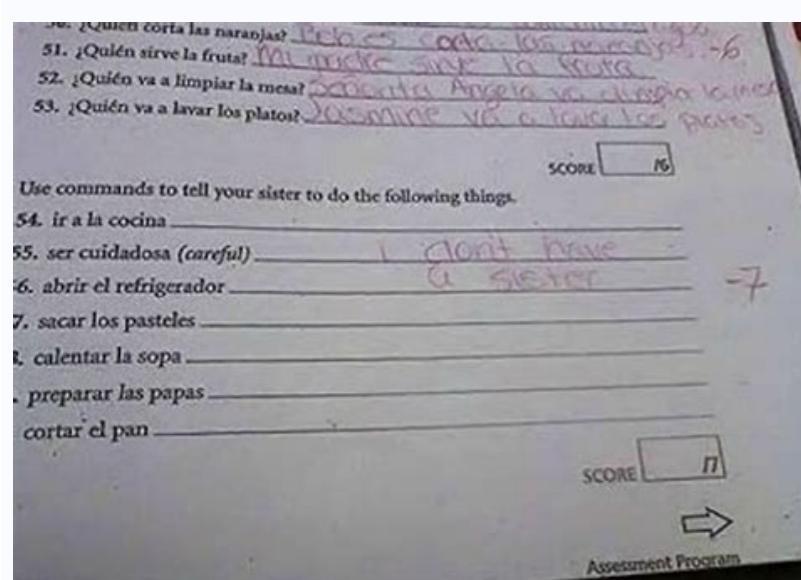 50. ¿Quién corta las naranjas? corta las naranjas -6
51. ¿Quién sirve la fruta? Mi madre sirve la fruta
52. ¿Quién va a limpiar la mesa? Señorita Angela va a limpia la mesa
53. ¿Quién va a lavar los platos? Jasmine va a lavar los platos
SCORE /6
Use commands to tell your sister to do the following things.
54. ir a la cocina
55. ser cuidadosa (careful) I don't have
6. abrir el refrigerador a sister -7
7. sacar los pasteles
calentar la sopa
. preparar las papas
cortar el pan
SCORE /7
Assessment Program